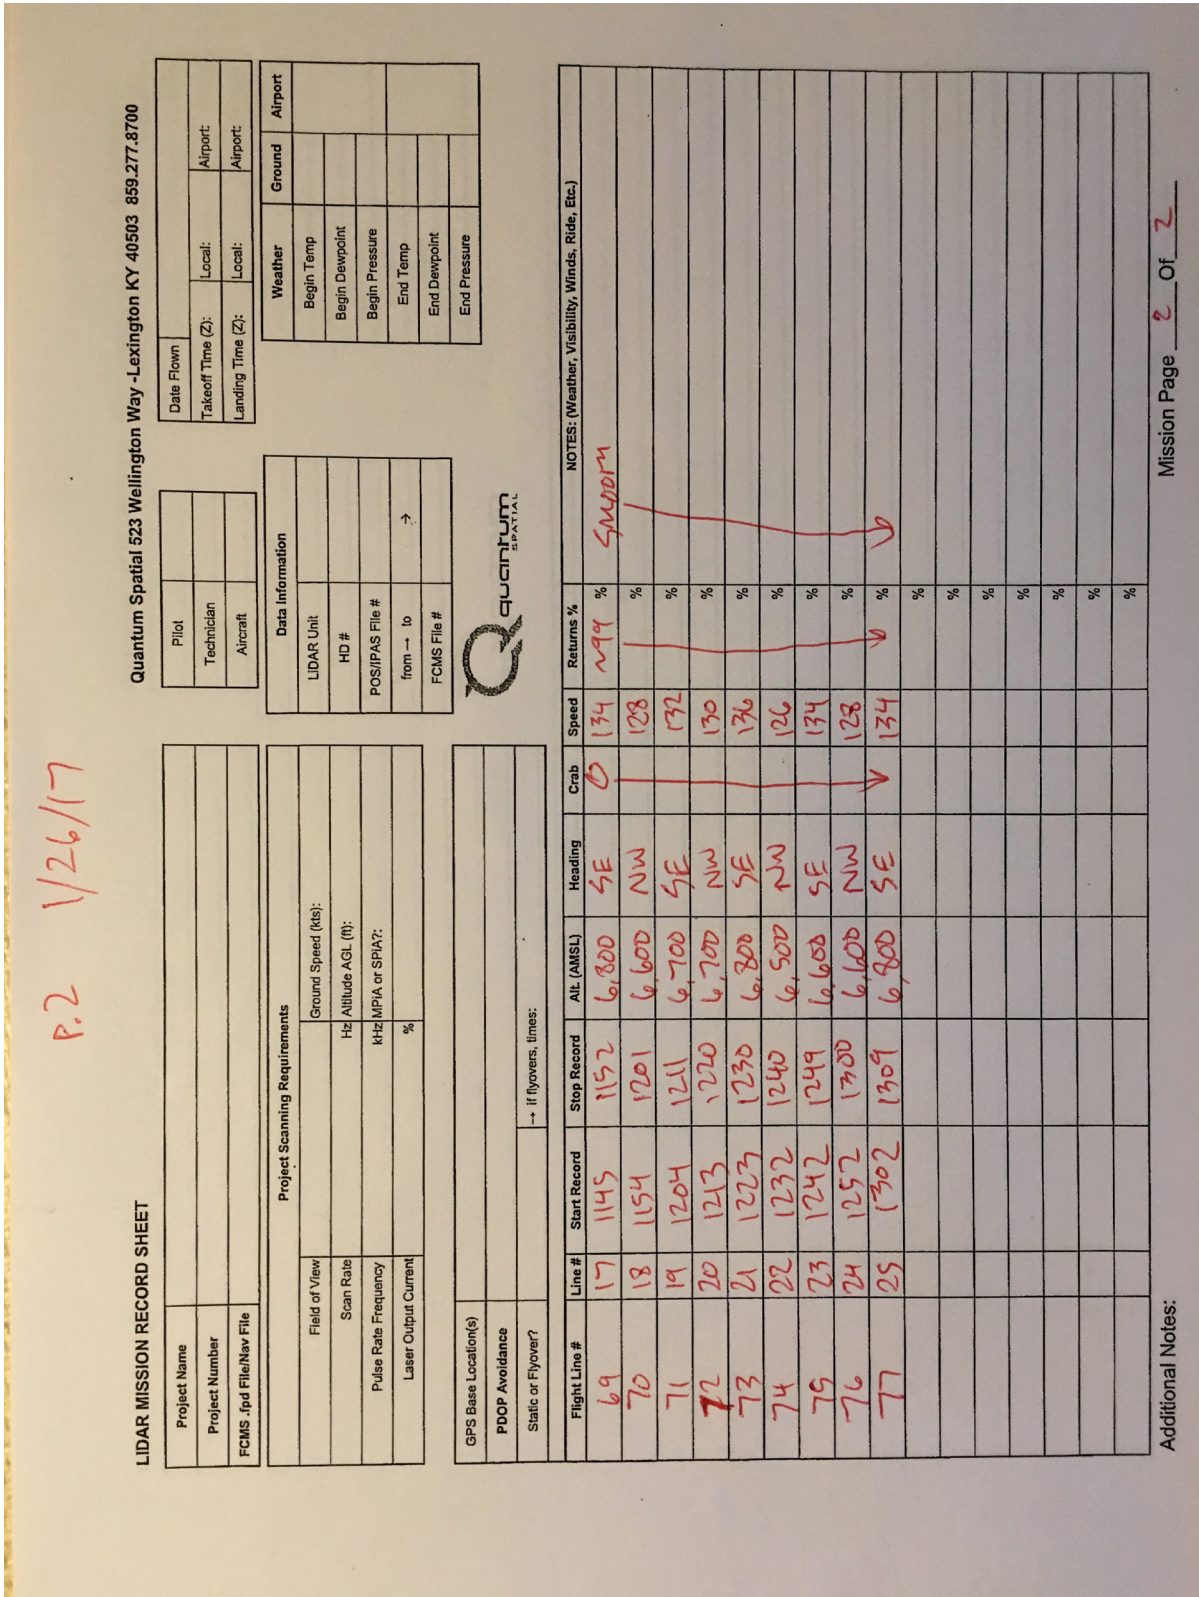 p.2 1/26/17
LIDAR MISSION RECORD SHEET
Quantum Spatial 523 Wellington Way -Lexington KY 40503 859.277.8700
Project Name
Project Number
FCMS .fpd File/Nav File
Pilot
Technician
Aircraft
Date Flown
Takeoff Time (Z): Local: Airport:
Landing Time (Z): Local: Airport:
Project Scanning Requirements
Field of View Ground Speed (kts):
Scan Rate Hz Altitude AGL (ft):
Pulse Rate Frequency kHz MPiA or SPiA?:
Laser Output Current %
Data Information
LiDAR Unit
HD #
POS/IPAS File #
from → to →
FCMS File #
Weather Ground Airport
Begin Temp
Begin Dewpoint
Begin Pressure
End Temp
End Dewpoint
End Pressure
GPS Base Location(s)
PDOP Avoidance
Static or Flyover? → if flyovers, times:
Quantum
SPATIAL
Flight Line # Line # Start Record Stop Record Alt. (AMSL) Heading Crab Speed Returns % NOTES: (Weather, Visibility, Winds, Ride, Etc.)
69 17 1145 1152 6,800 SE 0 134 ~99 % Smooth
70 18 1154 1201 6,600 NW 128 %
71 19 1204 1211 6,700 SE 132 %
72 20 1213 1220 6,700 NW 130 %
73 21 1223 1230 6,800 SE 136 %
74 22 1232 1240 6,500 NW 126 %
75 23 1242 1249 6,600 SE 134 %
76 24 1252 1300 6,600 NW 128 %
77 25 1302 1309 6,800 SE 134 %
%
%
%
%
%
%
%
Additional Notes:
Mission Page 2 Of 2